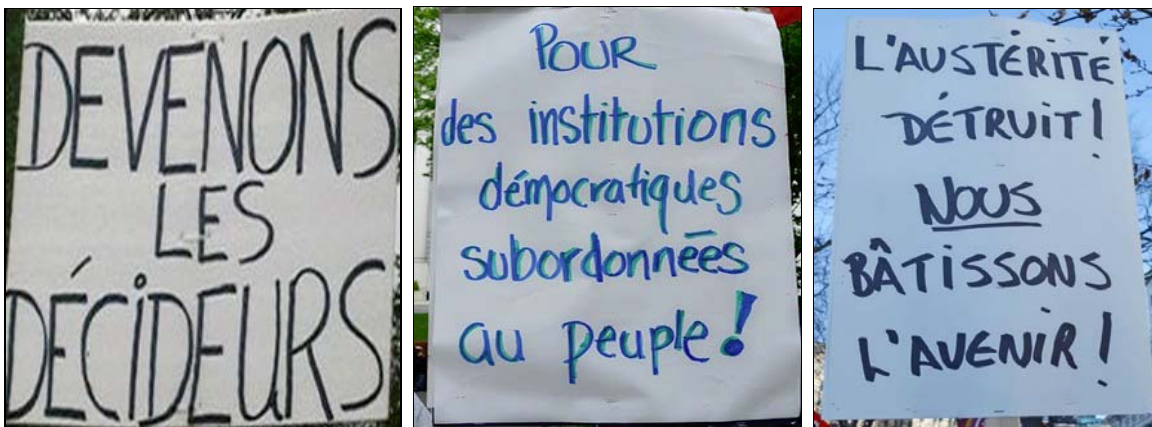 DEVENONS
LES
DÉCiDEURS
POUR
des institutions
démocratiques
subordonnées
au peuple!
L'AUSTÉRITÉ
DÉTRUIT!
NOUS
BÂTISSONS
L'AVENIR!